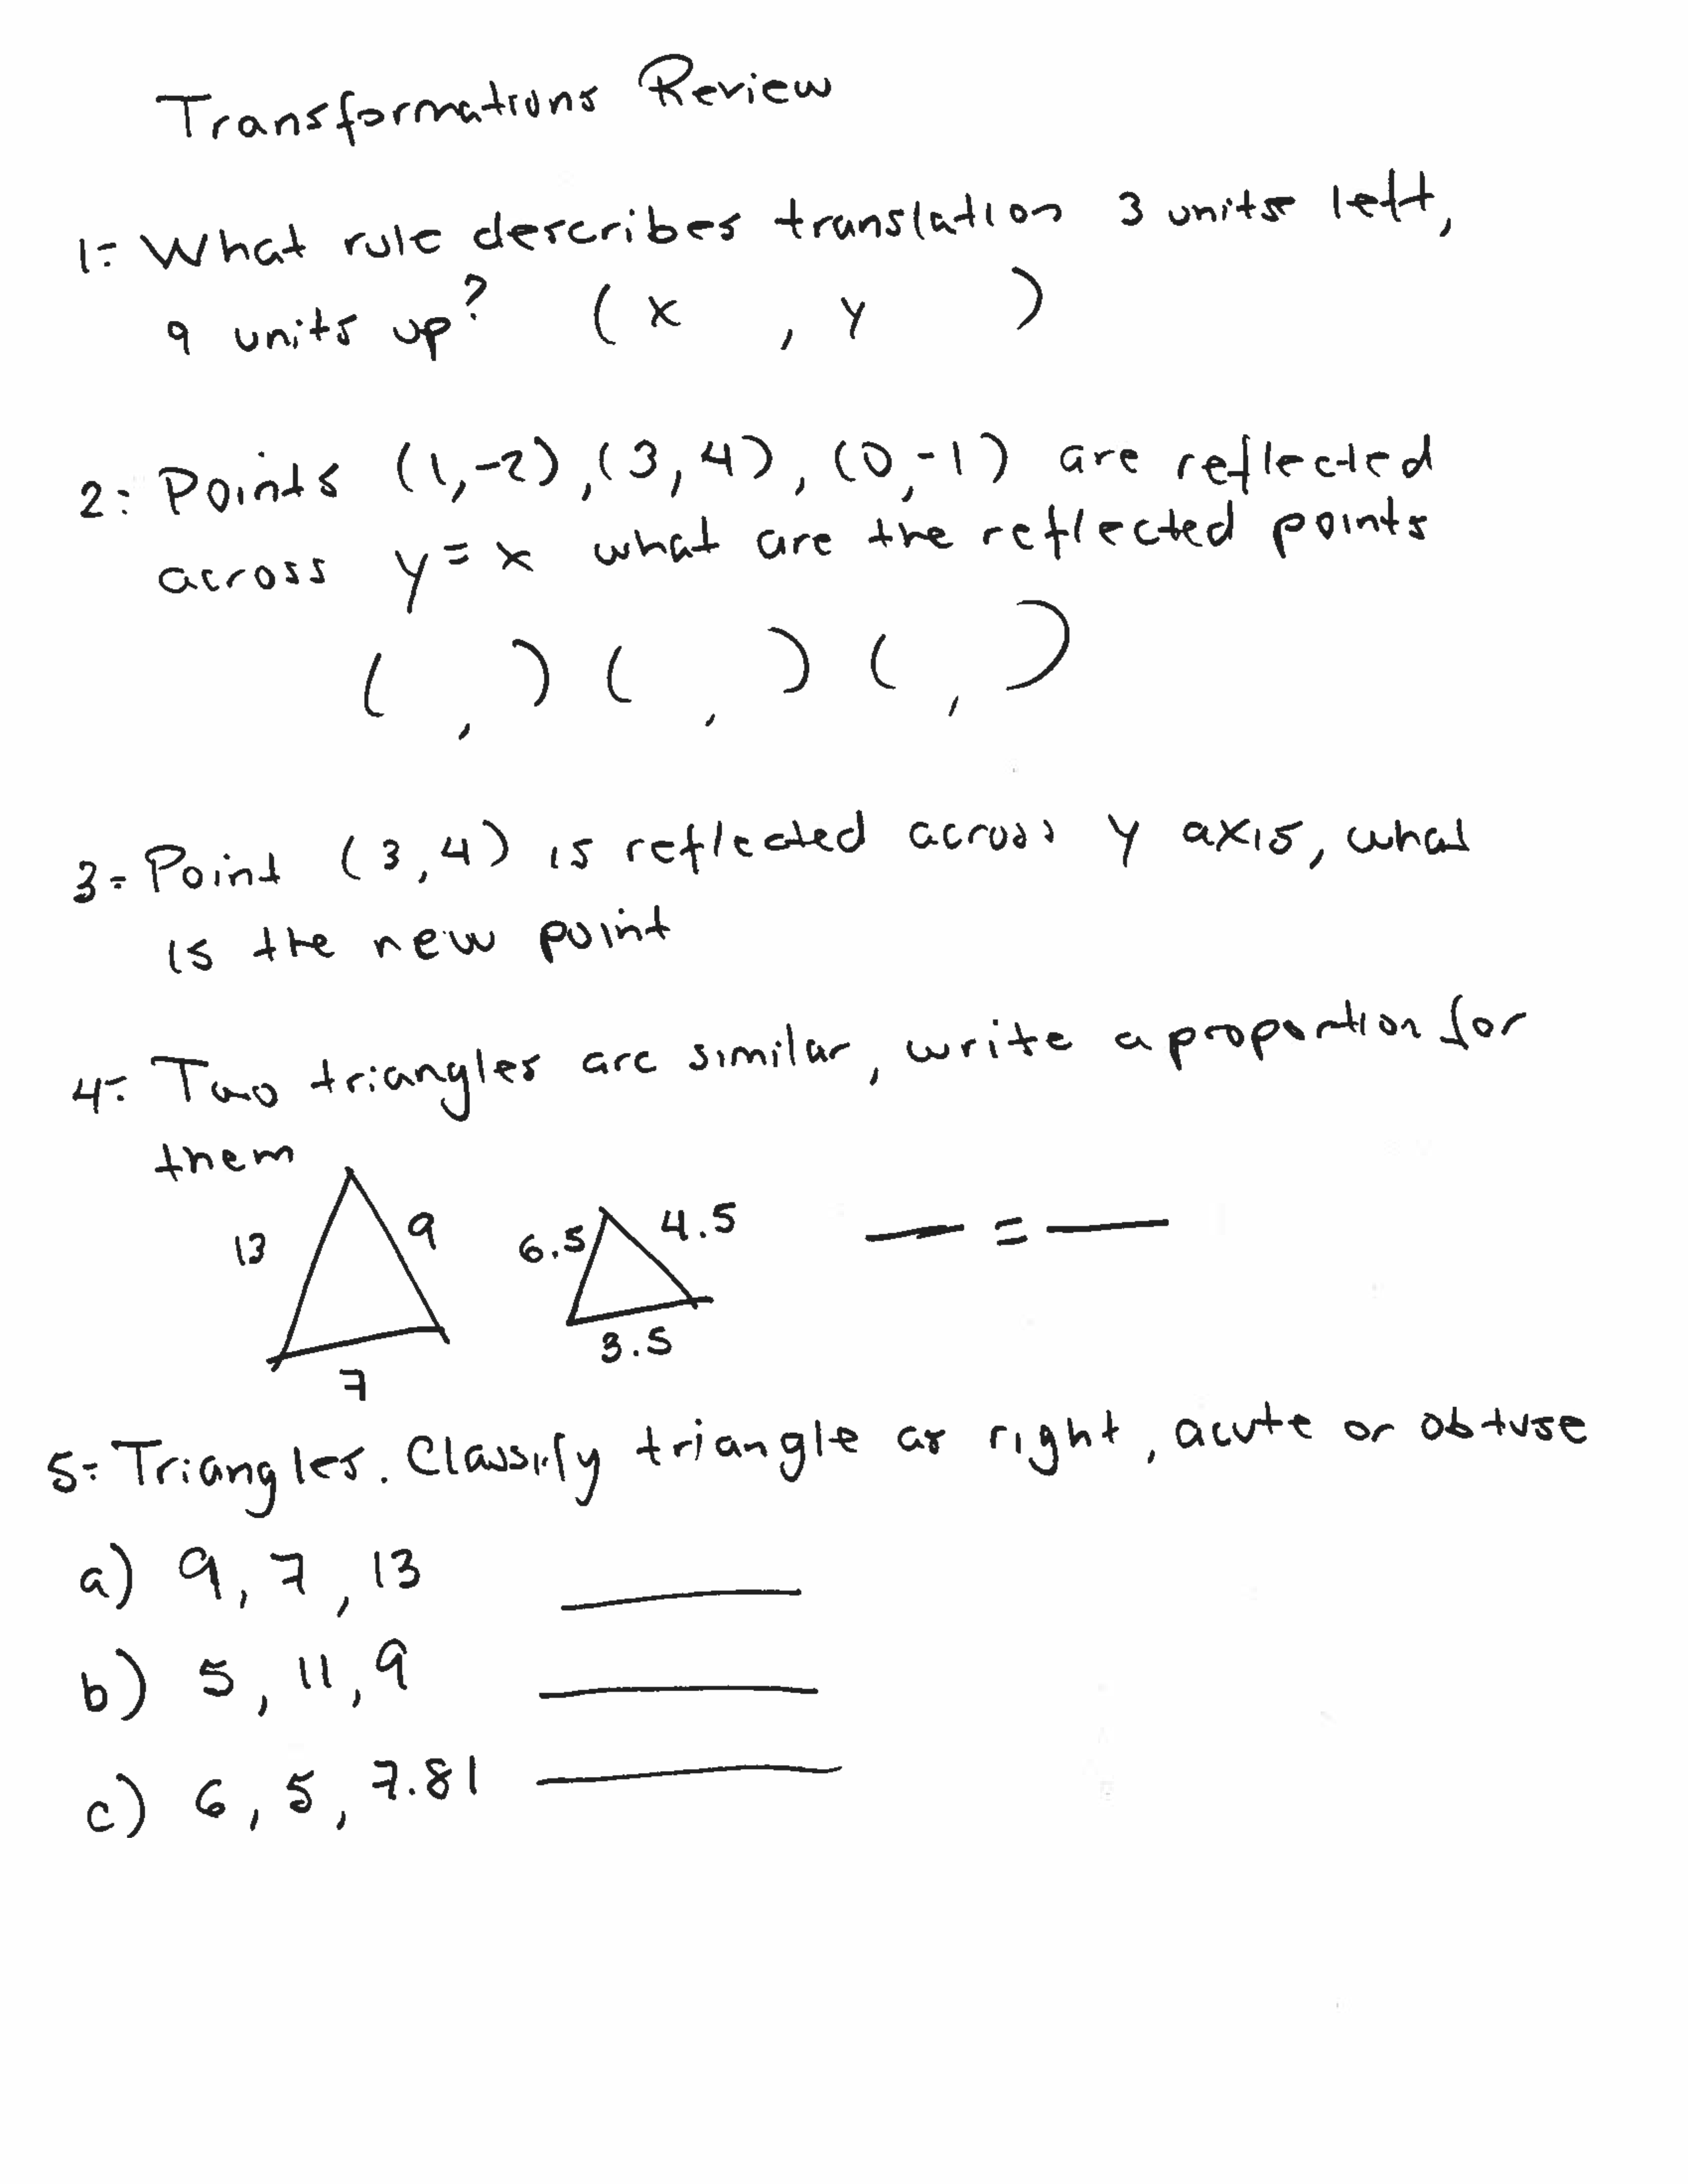 Transformations Review
1= What rule describes translation 3 units left,
9 units up? (x , y )
2: Points (1,-2),(3,4),(0,-1) are reflected
across y=x what are the reflected points
( , ) ( , ) ( , )
3= Point (3,4) is reflected across y axis, what
is the new point
4= Two triangles are similar, write a proportion for
them
13 9 6.5 4.5 — = —
7 3.5
5= Triangles. Classify triangle as right, acute or obtuse
a) 9, 7, 13
b) 5, 11, 9
c) 6, 5, 7.81